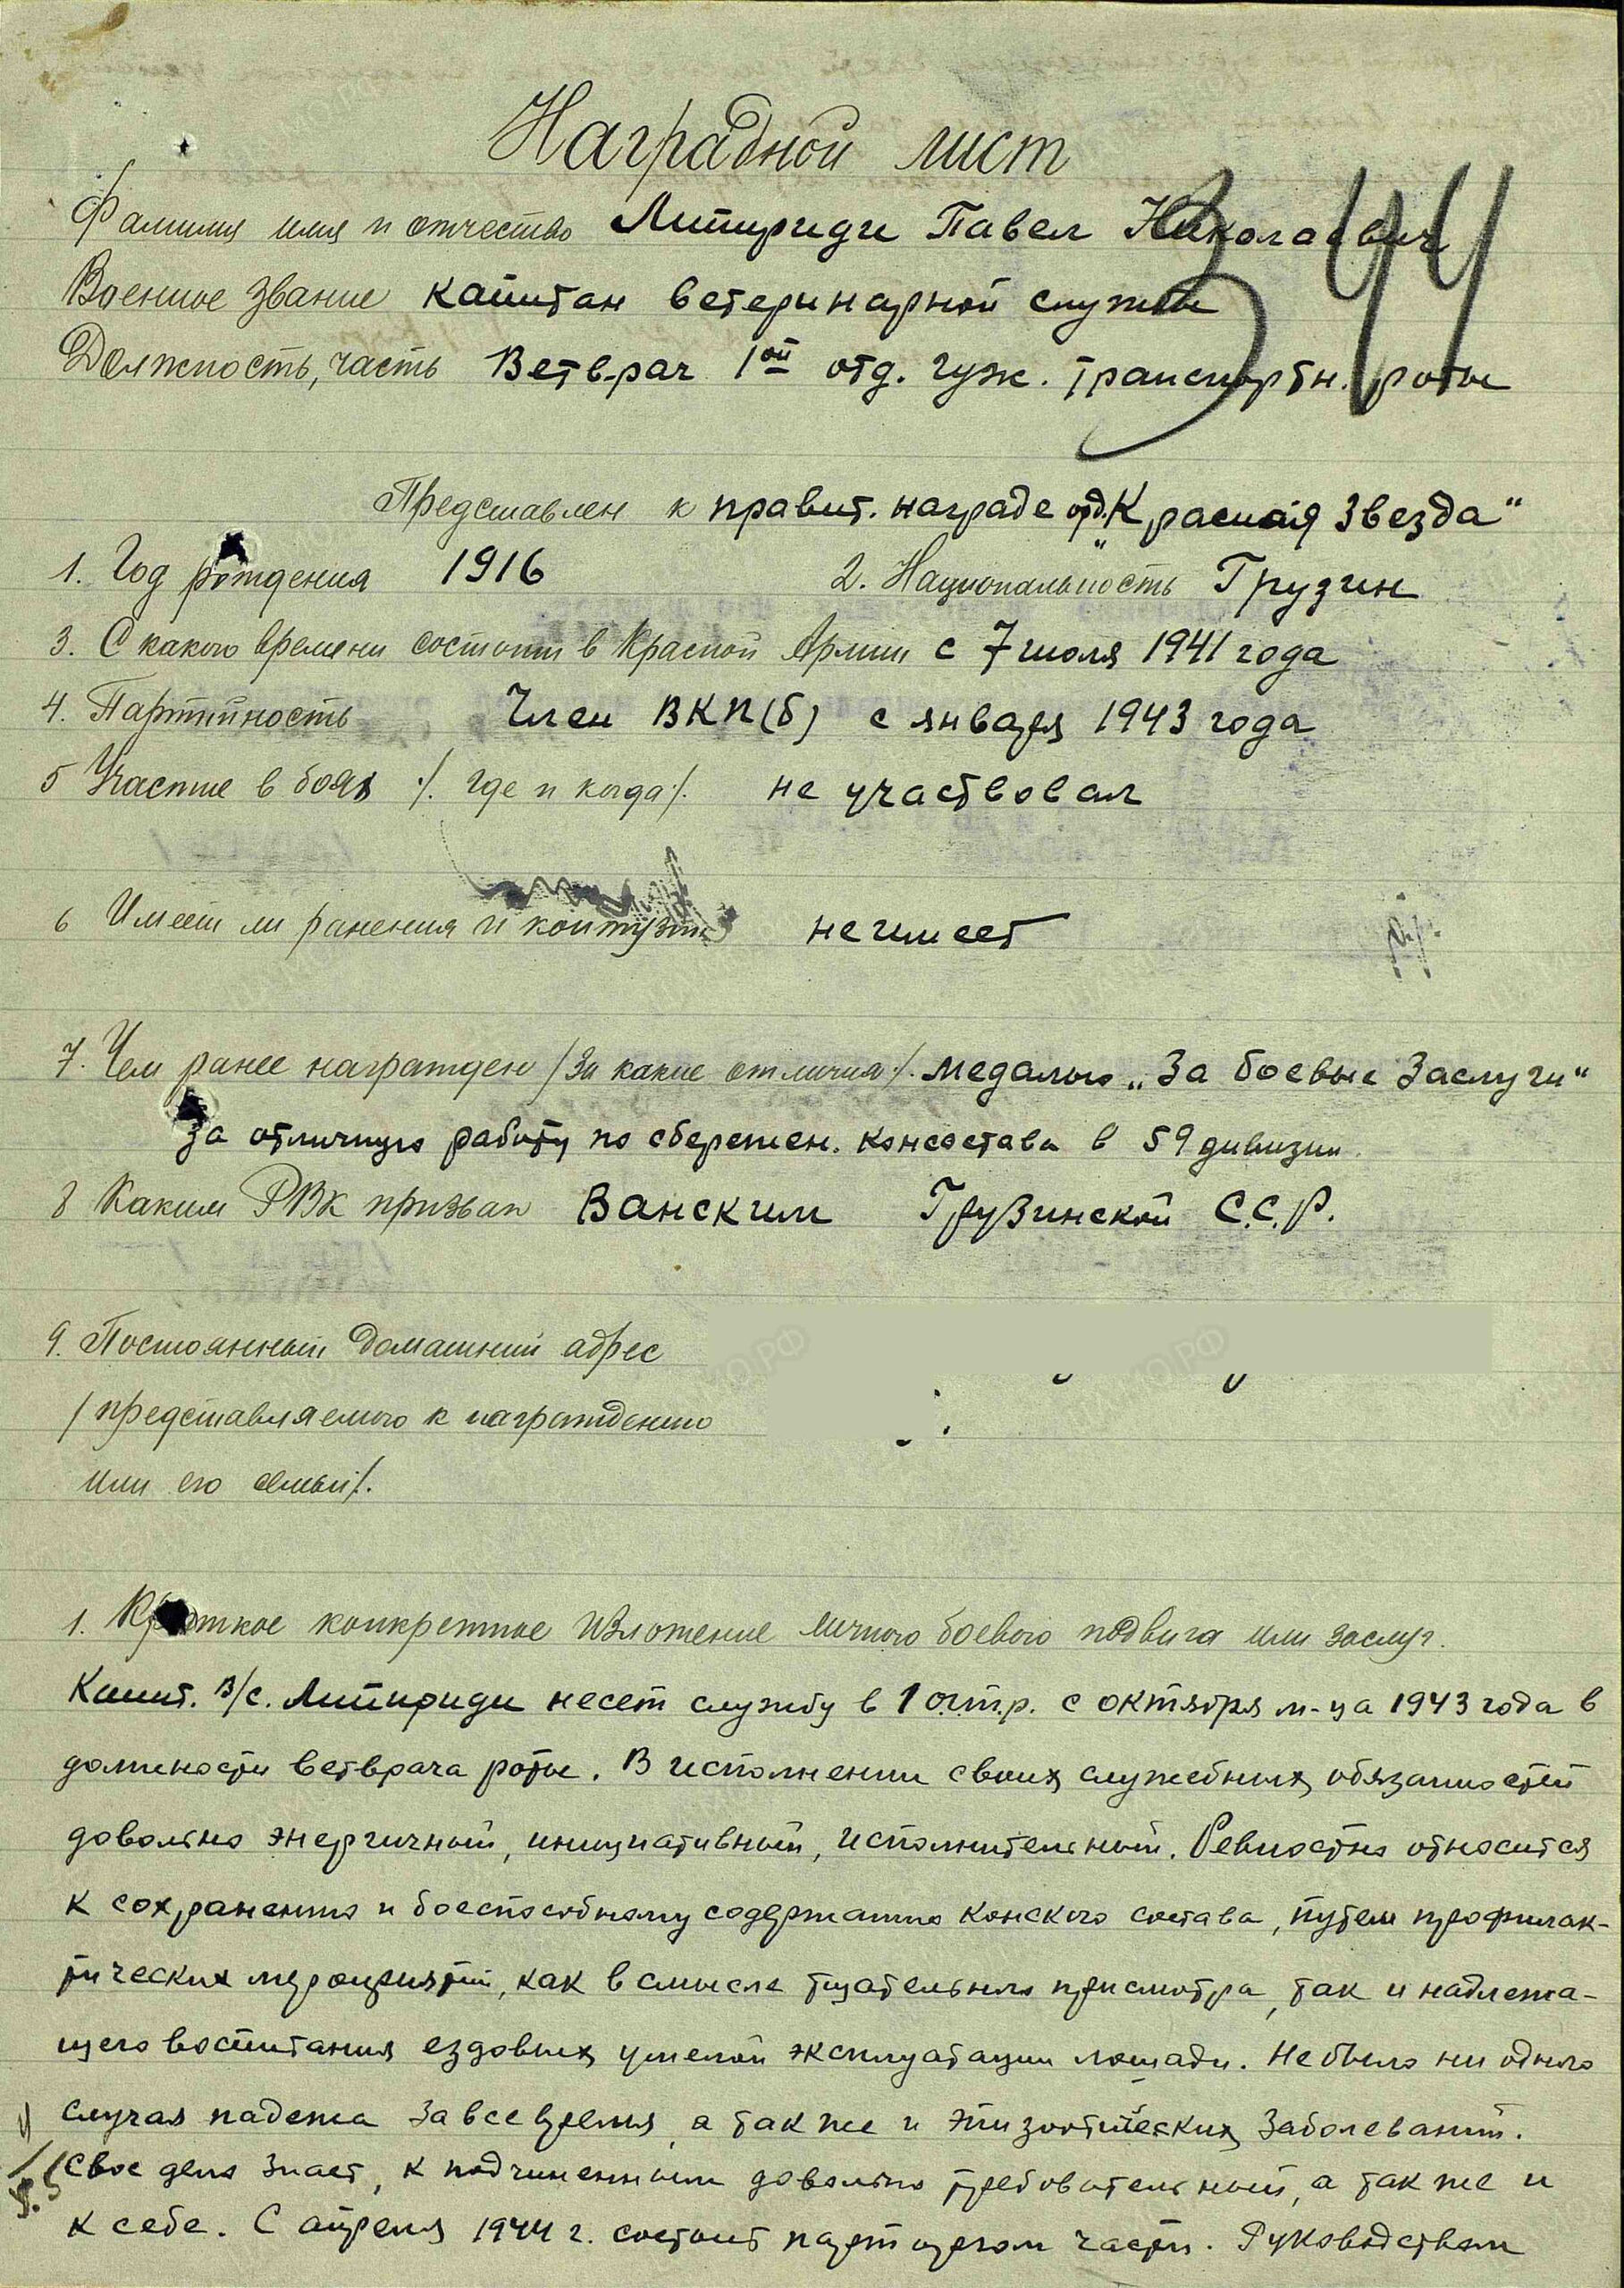 Наградной лист
344
Фамилия имя и отчество Липириди Павел Николаевич
Военное звание капитан ветеринарной службы
Должность, часть Ветврач 1ой отд. гуж. транспортн. роты
Представлен к правит. награде орд. „Красная Звезда“
1. Год рождения 1916 2. Национальность Грузин
3. С какого времени состоит в Красной Армии с 7 июля 1941 года
4. Партийность Член ВКП(б) с января 1943 года
5 Участие в боях /. где и когда/. не участвовал
6 Имеет ли ранения и контузии не имеет
7. Чем ранее награжден /За какие отличия/. медалью „За боевые Заслуги“
За отличную работу по сбережен. консостава в 59 дивизии.
8 Каким РВК призван Ванским Грузинской С.С.Р.
9. Постоянный домашний адрес
/представляемого к награждению
или его семьи/.
1. Краткое конкретное изложение личного боевого подвига или заслуг.
Капит. в/с. Липириди несет службу в 1 о.г.т.р. с октября м-ца 1943 года в
должности ветврача роты. В исполнении своих служебных обязанностей
довольно энергичный, инициативный, исполнительный. Ревностно относится
к сохранению и боеспособному содержанию конского состава, путем профилак-
тических мероприятий, как в смысле тщательного присмотра, так и надлежа-
щего воспитания ездовых умелой эксплуатации лошади. Не было ни одного
случая падежа за все время, а так же и эпизоотических заболеваний.
Свое дело знает, к подчиненным довольно требовательный, а так же и
к себе. С апреля 1944 г. состоит парторгом части. Руководством